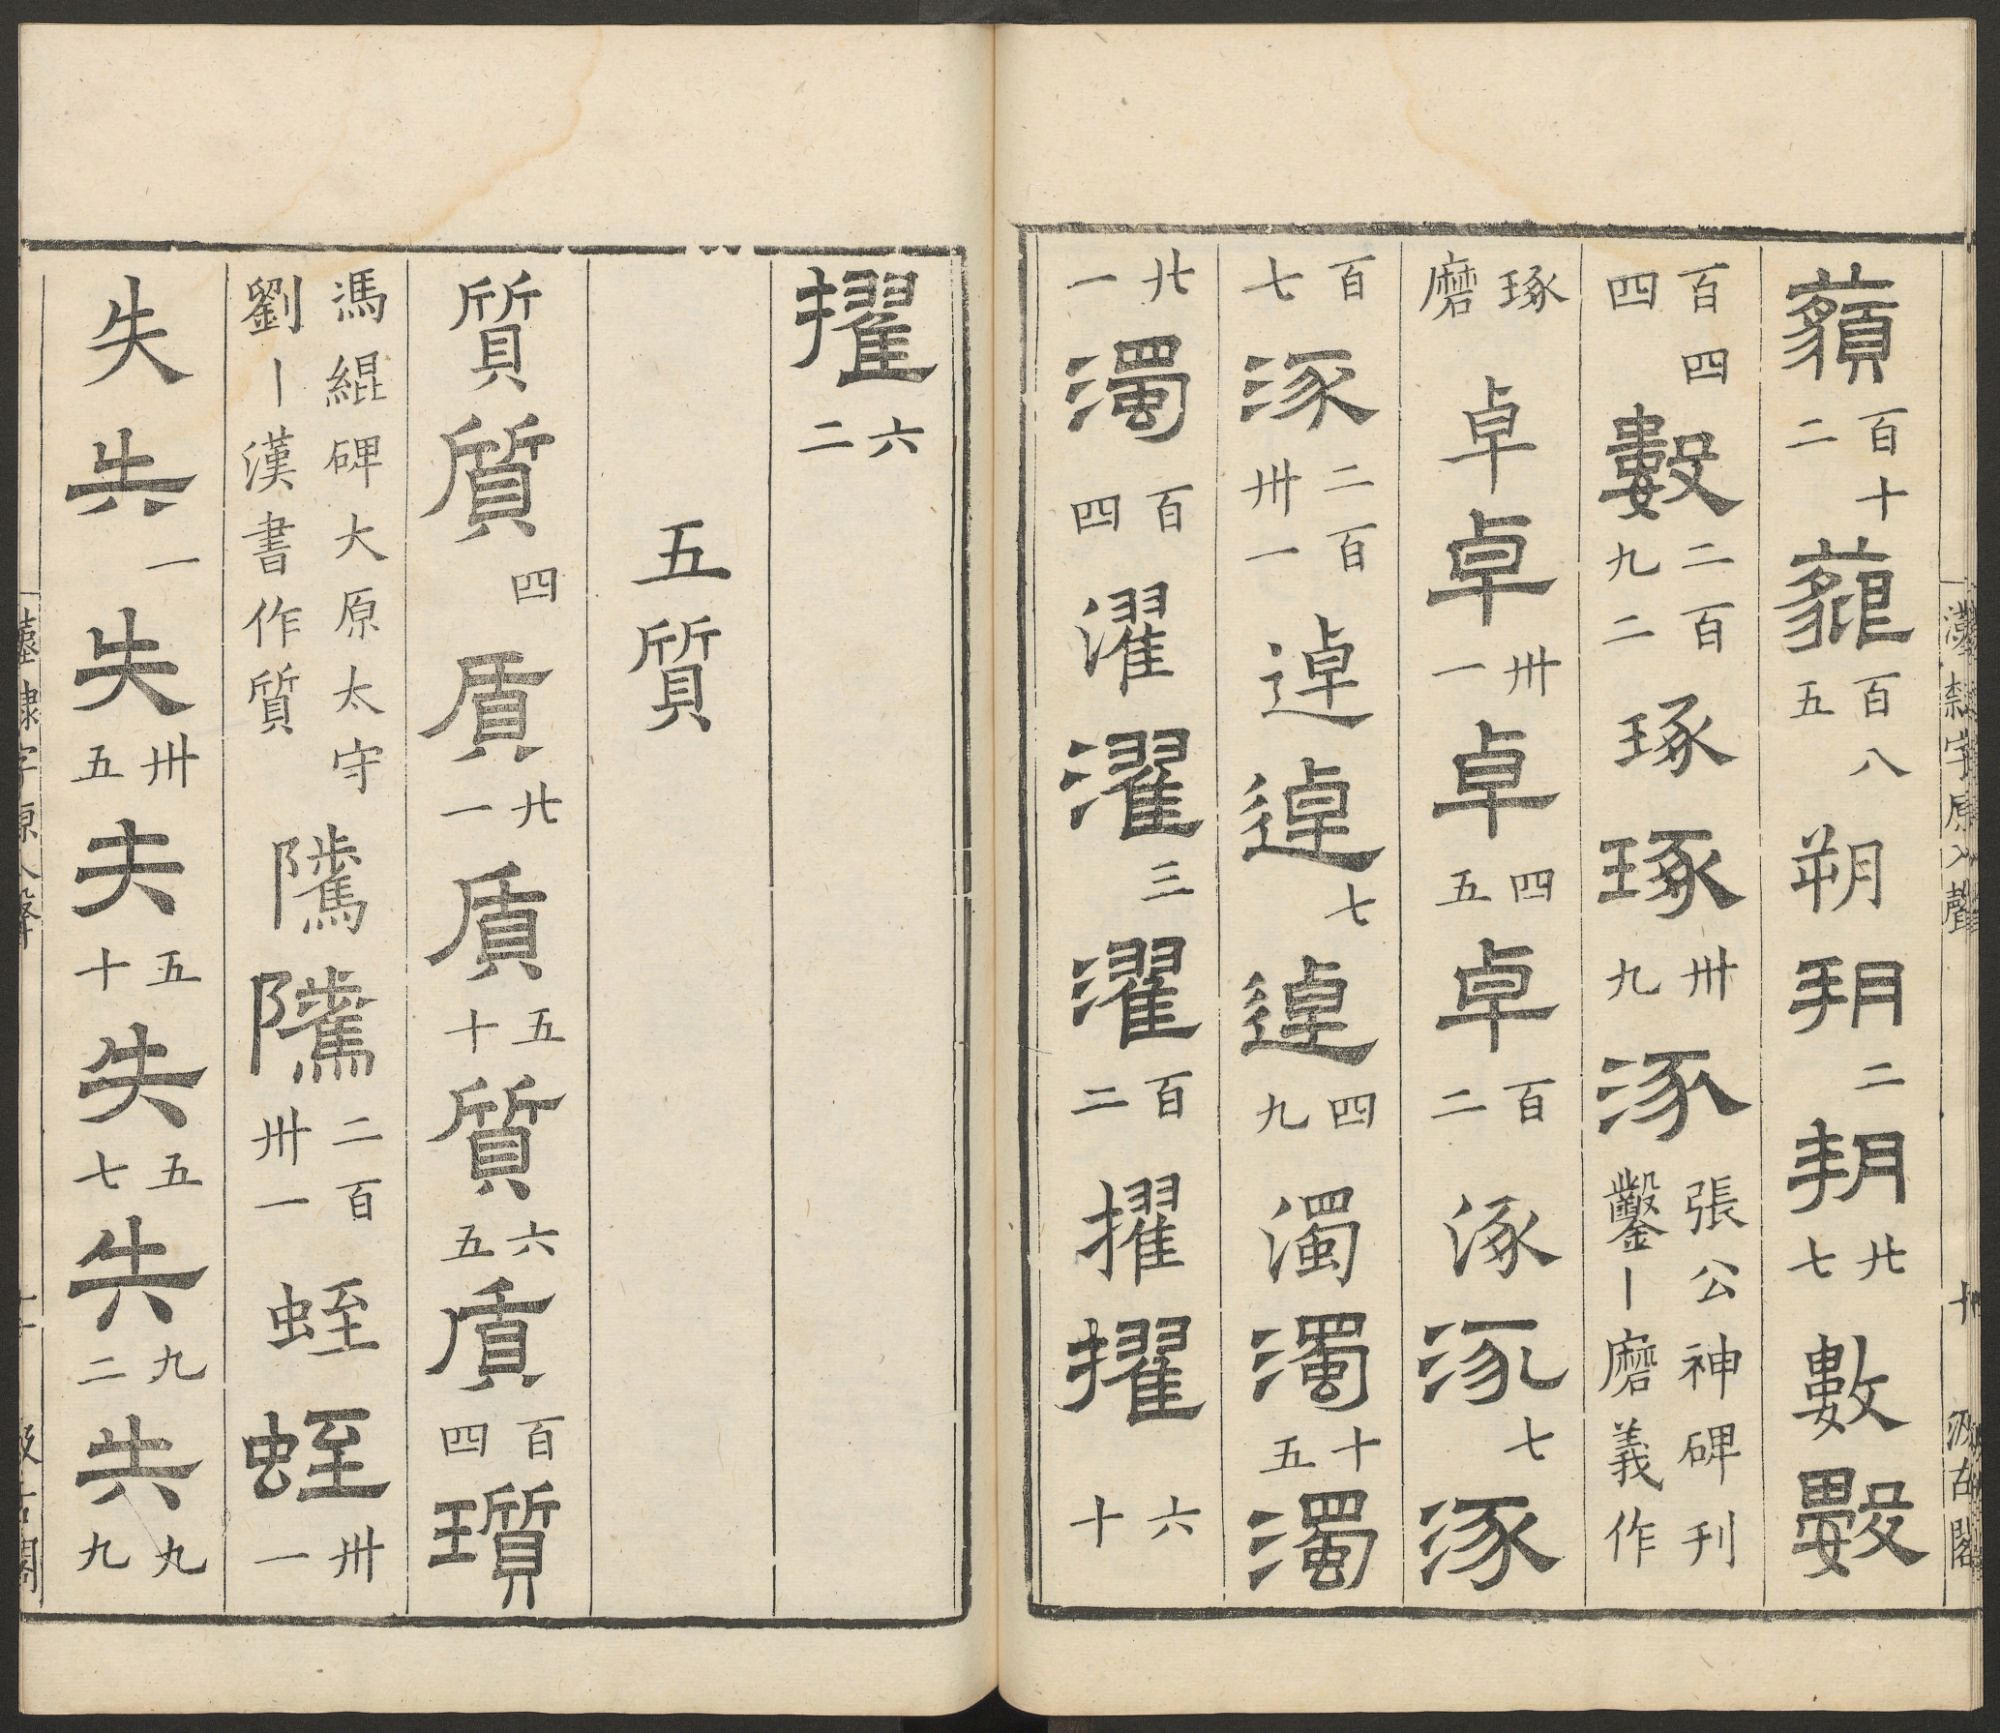 藐百十二藐百八五朔朔二朔廿七數數
百四四數二百九二琢琢卅九涿張公神碑刊鑿丨磨義作
琢磨卓卓卅一卓四五卓百二涿涿七涿
百七涿二百卅一逴逴七逴四九濁濁十五濁
廿一濁百四濯濯三濯百二擢擢六十
擢六二
五質
質質四質廿一質五十質六五質百四瓆
馮緄碑大原太守劉丨漢書作質騭騭二百卅一蛭蛭卅一
失失一失卅五失五十失五七失九二失九九
漢隸字原入聲 十 汲古閣